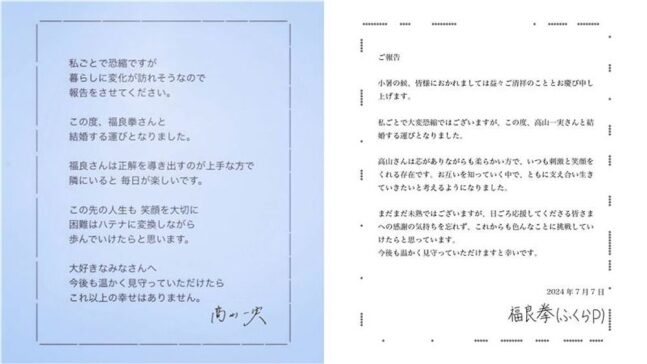 私ごとで恐縮ですが
暮らしに変化が訪れそうなので
報告をさせてください。
この度、福良拳さんと
結婚する運びとなりました。
福良さんは正解を導き出すのが上手な方で
隣にいると 毎日が楽しいです。
この先の人生も 笑顔を大切に
困難はハテナに変換しながら
歩んでいけたらと思います。
大好きなみなさんへ
今後も温かく見守っていただけたら
これ以上の幸せはありません。
高山一実
ご報告
小暑の候、皆様におかれましては益々ご清祥のこととお慶び申し
上げます。
私ごとで大変恐縮ではございますが、この度、高山一実さんと結
婚する運びとなりました。
高山さんは芯がありながらも柔らかい方で、いつも刺激と笑顔を
くれる存在です。お互いを知っていく中で、ともに支え合い生き
ていきたいと考えるようになりました。
まだまだ未熟ではございますが、日ごろ応援してくださる皆さま
への感謝の気持ちを忘れず、これからも色んなことに挑戦してい
けたらと思っています。
今後も温かく見守っていただけますと幸いです。
2024年7月7日
福良拳(ふくらP)